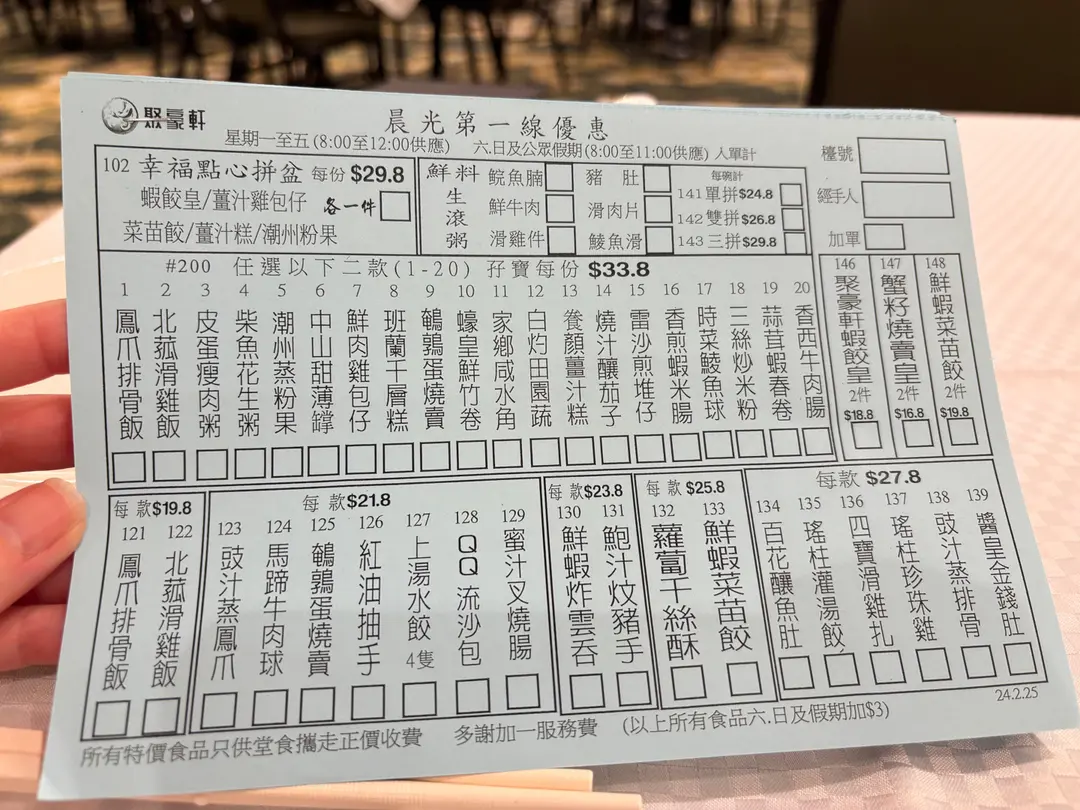 聚豪軒
晨光第一線優惠
星期一至五(8:00至12:00供應) 六.日及公眾假期(8:00至11:00供應) 入單計
檯號
經手人
加單
102 幸福點心拼盆 每份 $29.8
蝦餃皇/薑汁雞包仔 各一件
菜苗餃/薑汁糕/潮州粉果
鮮料生滾粥
鯇魚腩
豬肚
鮮牛肉
滑肉片
滑雞件
鯪魚滑
每碗計
141 單拼 $24.8
142 雙拼 $26.8
143 三拼 $29.8
#200 任選以下二款(1-20) 孖寶每份 $33.8
1 鳳爪排骨飯
2 北菰滑雞飯
3 皮蛋瘦肉粥
4 柴魚花生粥
5 潮州蒸粉果
6 中山甜薄罉
7 鮮肉雞包仔
8 班蘭千層糕
9 鵪鶉蛋燒賣
10 蠔皇鮮竹卷
11 家鄉咸水角
12 白灼田園蔬
13 養顏薑汁糕
14 燒汁釀茄子
15 雷沙煎堆仔
16 香煎蝦米腸
17 時菜鯪魚球
18 三絲炒米粉
19 蒜茸蝦春卷
20 香西牛肉腸
146 聚豪軒蝦餃皇 2件 $18.8
147 蟹籽燒賣皇 2件 $16.8
148 鮮蝦菜苗餃 2件 $19.8
每款$19.8
121 鳳爪排骨飯
122 北菰滑雞飯
每款$21.8
123 豉汁蒸鳳爪
124 馬蹄牛肉球
125 鵪鶉蛋燒賣
126 紅油抽手
127 上湯水餃 4隻
128 QQ流沙包
129 蜜汁叉燒腸
每款$23.8
130 鮮蝦炸雲吞
131 鮑汁炆豬手
每款 $25.8
132 蘿蔔千絲酥
133 鮮蝦菜苗餃
每款 $27.8
134 百花釀魚肚
135 瑤柱灌湯餃
136 四寶滑雞扎
137 瑤柱珍珠雞
138 豉汁蒸排骨
139 醬皇金錢肚
24.2.25
所有特價食品只供堂食攜走正價收費 多謝加一服務費 (以上所有食品六.日及假期加$3)